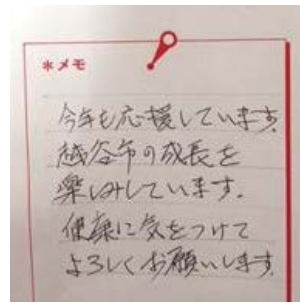 *メモ
今年も応援しています。
越谷市の成長を
楽しみしています。
健康に気をつけて
よろしくお願いします